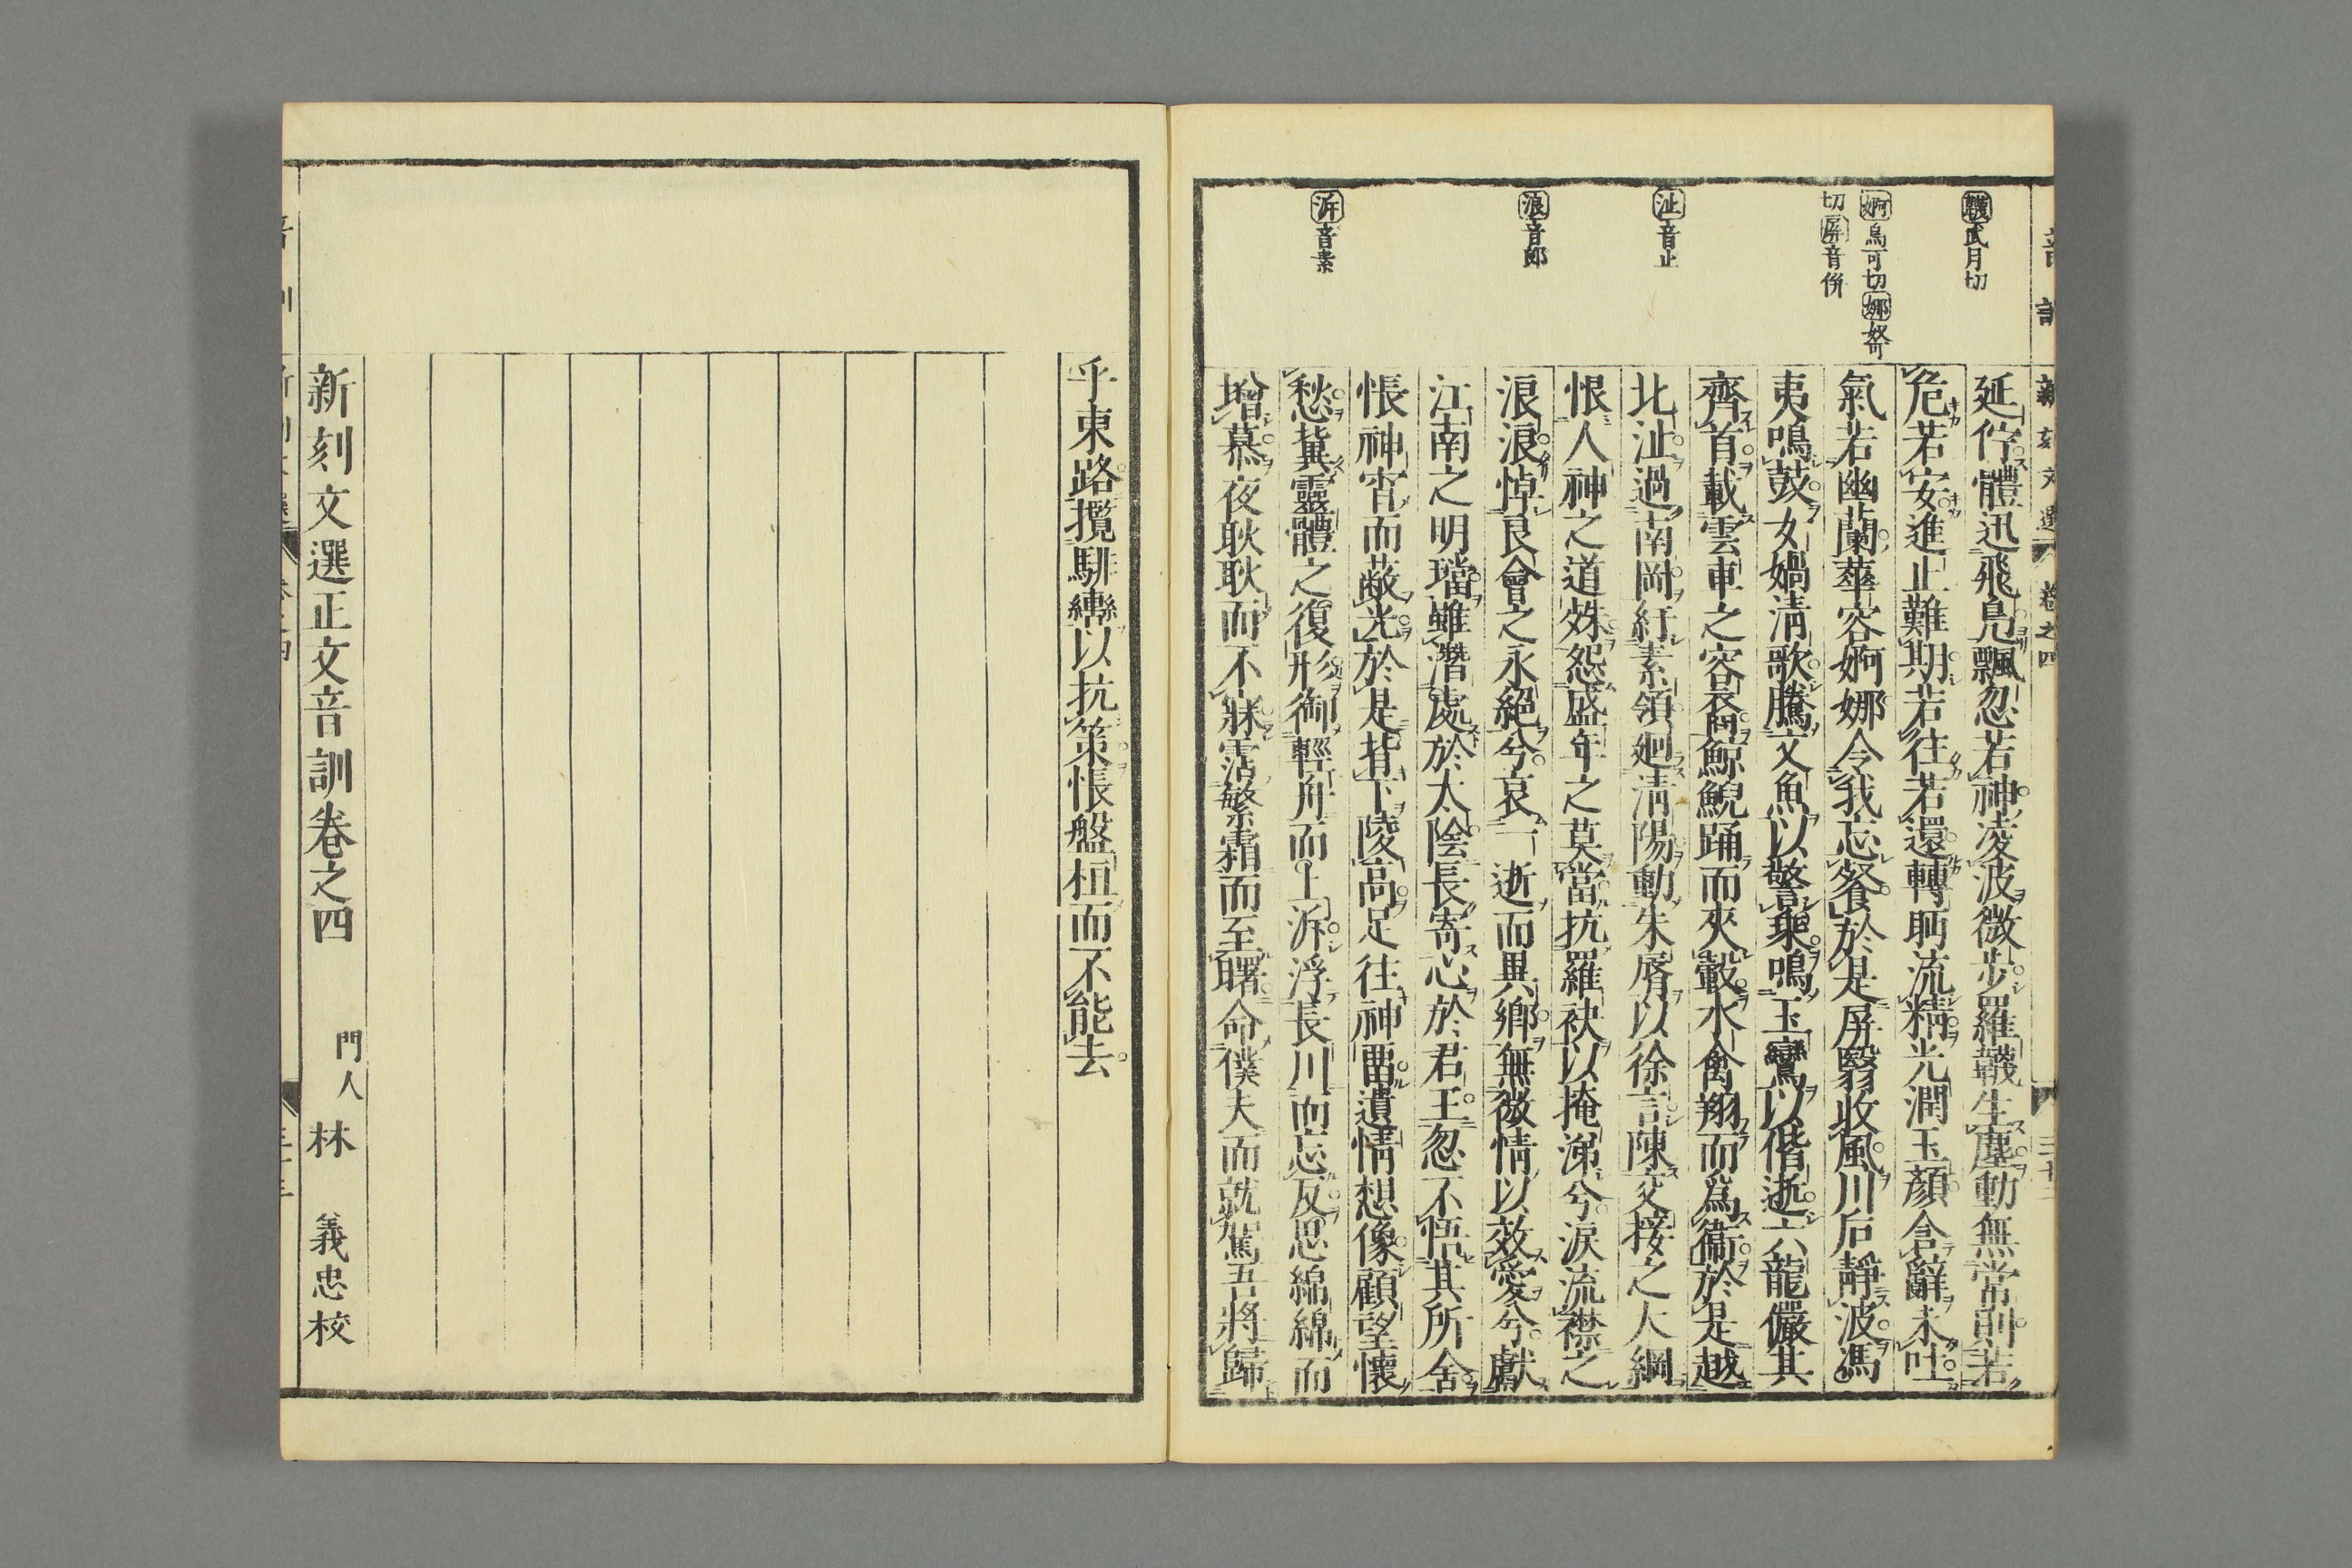 新刻文選
卷之四
韈武月切
婀烏可切娜奴可
切屏音俜
沚音止
浪音郎
泝音素
延佇體迅飛鳧飄忽若神凌波微步羅韈生塵動無常則若
危若安進止難期若往若還轉眄流精光潤玉顏含辭未吐
氣若幽蘭華容婀娜令我忘餐於是屏翳收風川后靜波馮
夷鳴鼓女媧淸歌騰文魚以警乘鳴玉鸞以偕逝六龍儼其
齊首載雲車之容裔鯨鯢踊而夾轂水禽翔而爲衞於是越
北沚過南岡紆素領廻淸陽動朱脣以徐言陳交接之大綱
恨人神之道殊怨盛年之莫當抗羅袂以掩涕兮淚流襟之
浪浪悼良會之永絕兮哀一逝而異鄕無微情以效愛兮獻
江南之明璫雖潛處於太陰長寄心於君王忽不悟其所舍
悵神宵而蔽光於是背下陵高足往神畱遺情想像顧望懷
愁冀靈體之復形御輕舟而上泝浮長川而忘反思綿綿而
增慕夜耿耿而不寐霑繁霜而至曙命僕夫而就駕吾將歸
乎東路攬騑轡以抗策悵盤桓而不能去
新刻文選正文音訓卷之四　門人　林　義忠校